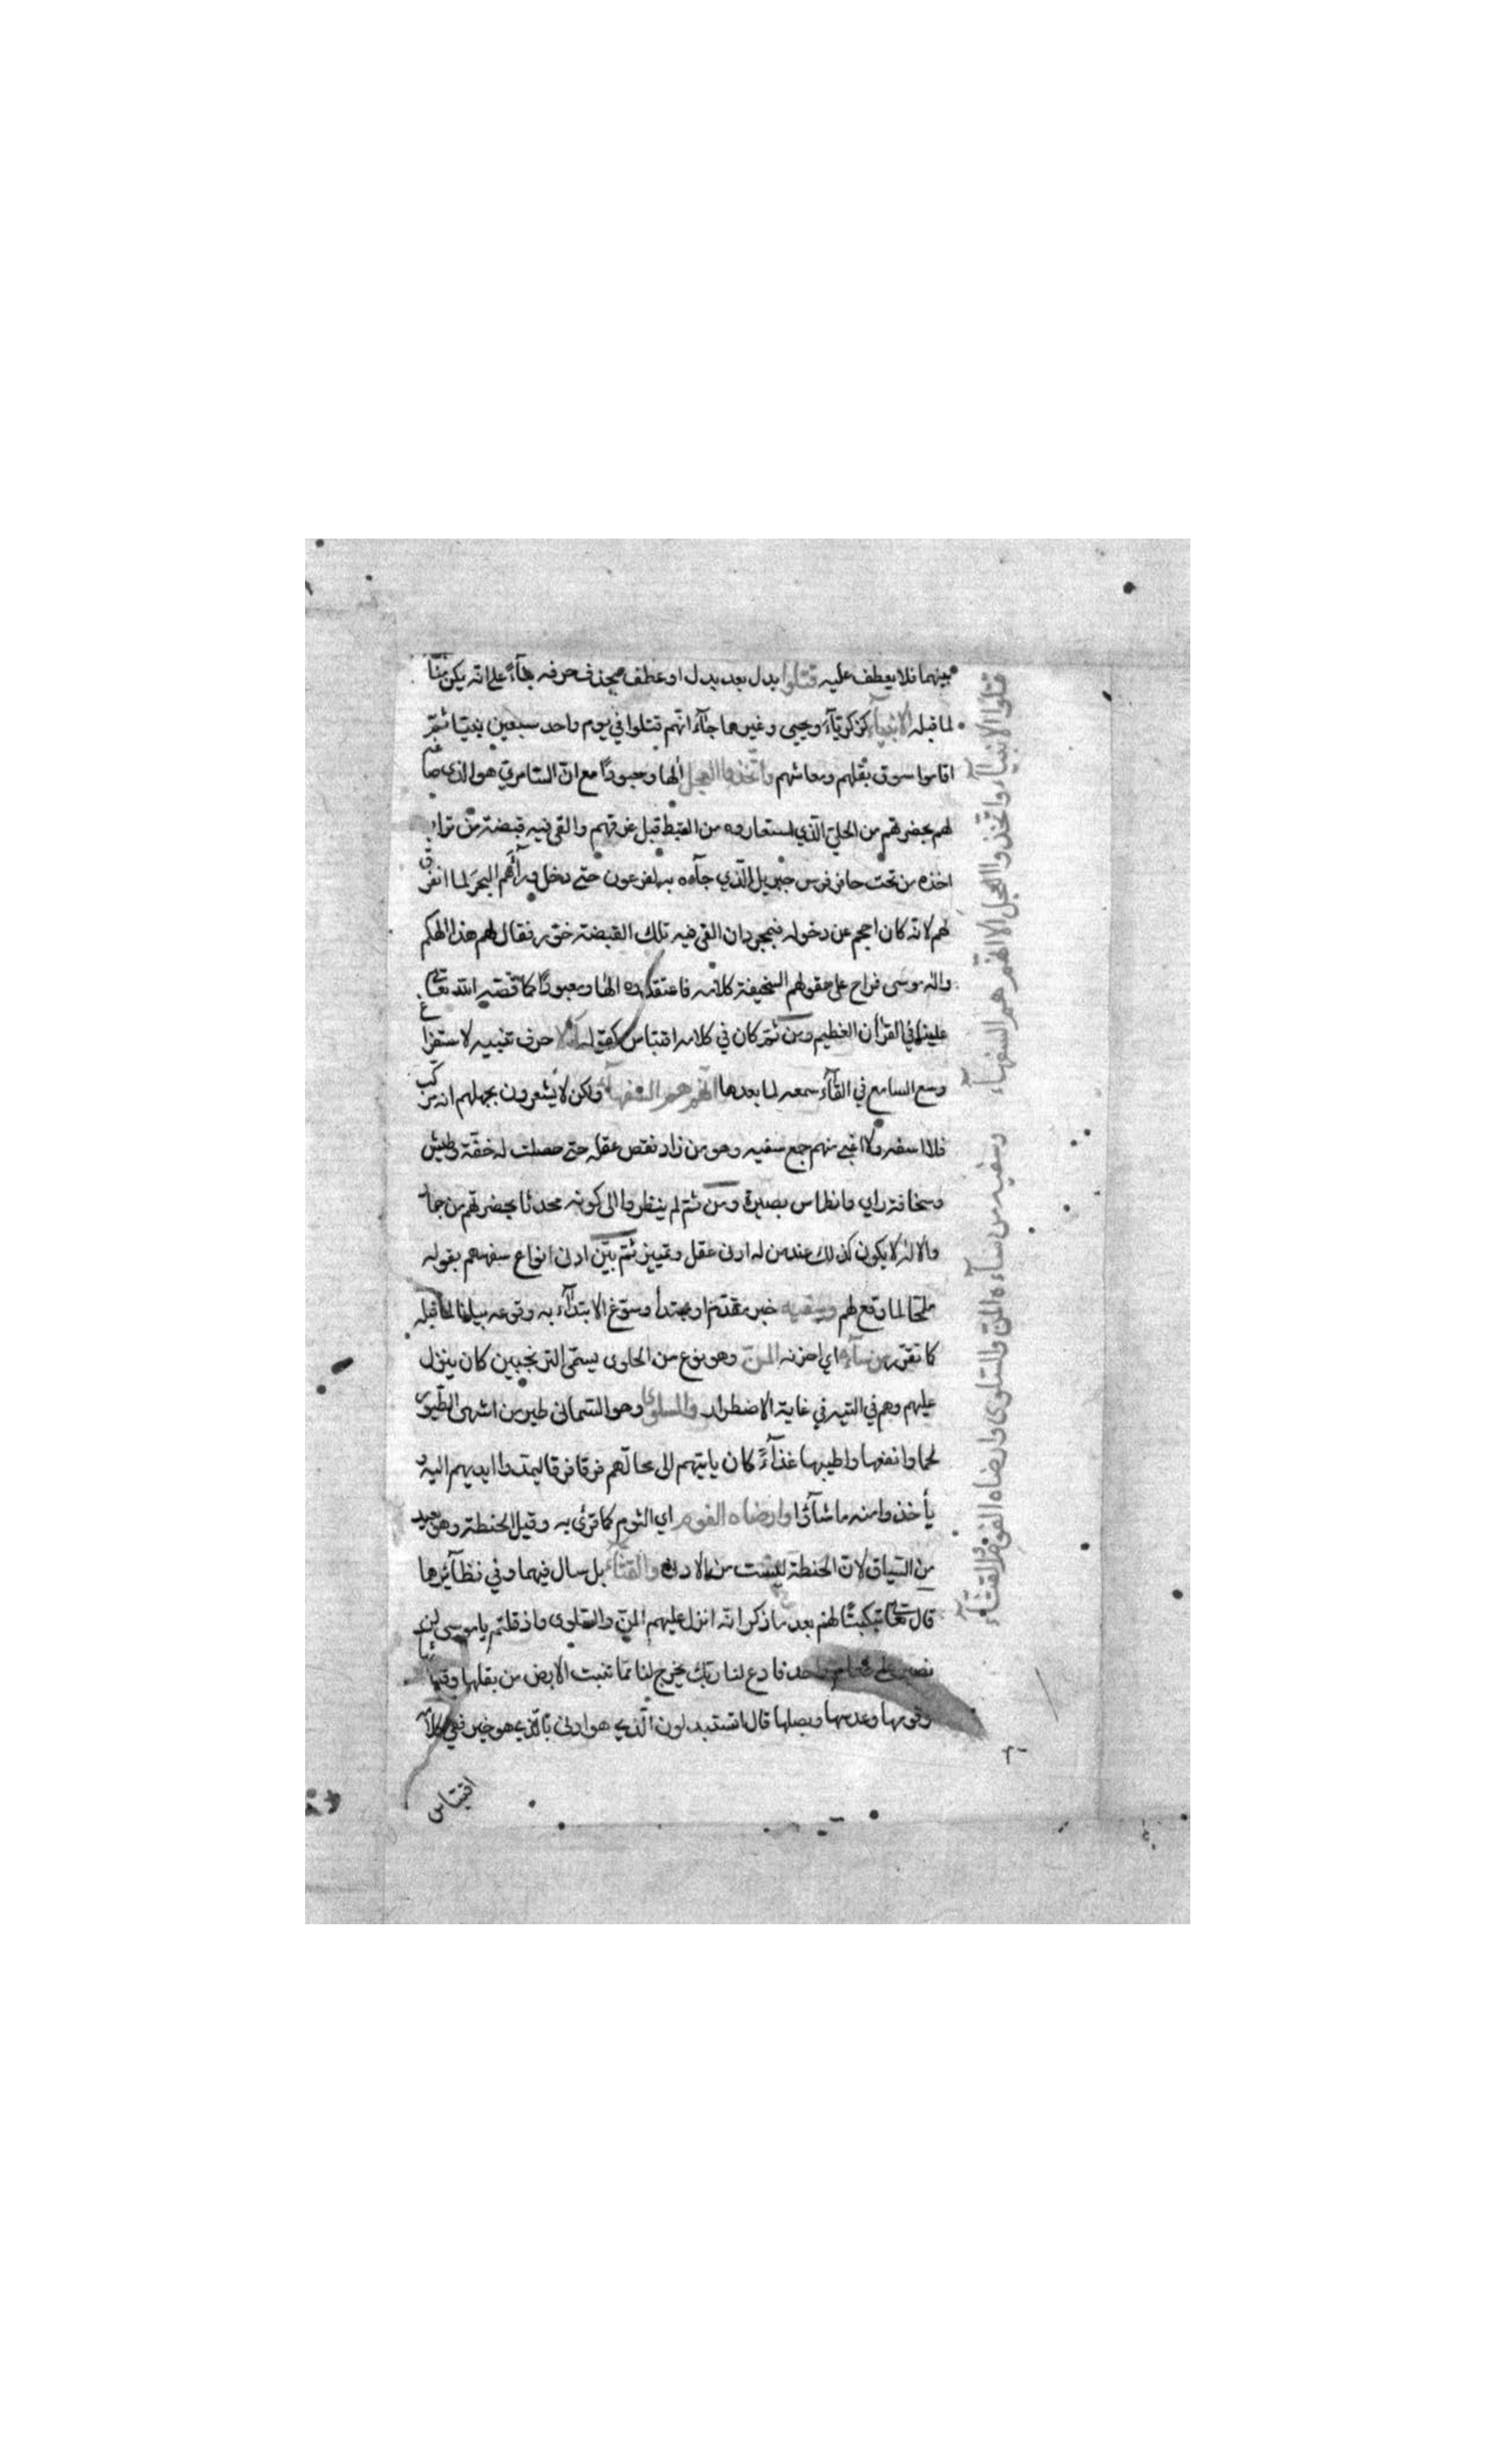 بينهما فلا يعطف عليه قتلوا بدل بعد بدل او عطف بحذف حرفه بناء على انه يكن مثنا
لما قبله الانبيآء كزكريآء ويحيى وغيرهما جآء انهم قتلوا في يوم واحد سبعين نبيا ثم
اقاموا سوق بقلهم ومعاشهم واتخذوا العجل الها ومعبودًا مع انّ السّامريّ هو الذى صاغه
لهم بحضرتهم من الحليّ الّذي استعاروه من القبط قبل غرقهم والقى فيه قبضة من تراب
اخذه من تحت حافر فرس جبريل الّذي جآءه به لفرعون حتى دخل ورآءهم البحر لما انفرق
لهم لانّه كان احجم عن دخوله فبمجرد ان القى فيه تلك القبضة خور فقال لهم هذا الهكم
واله موسى فراح على عقولهم السخيفة كلامه فاعتقدوه الها ومعبودًا كما قصّه الله تعالى
علينا في القرأن العظيم ومن ثمّ كان في كلامه اقتباس كقوله ألا حرف تنبيه لاستفراغ
وسع السامع في القآء سمعه لما بعدها انهم هم السفهآء ولكن لا يشعرون بجهلهم المركب
فلا اسفه ولا اغبى منهم جمع سفيه وهو من زاد نقص عقله حتى حصلت له خفّة وطيش
وسخافة راي وانطماس بصيرة ومن ثمّ لم ينظروا الى كونه محدثا بحضرتهم من جماد
والاله لا يكون كذلك عند من له ادنى عقل وتمييز ثمّ بيّن ادنى انواع سفههم بقوله
ملمّحا لما وقع لهم وسفيه خبر مقدّم او مبتدأ وسوّغ الابتدآء به وقوعه بيانا لما قبله
كما تقرّر من سآءه اي احزنه المنّ وهو نوع من الحلوى يسمّى الترنجبين كان ينزل
عليهم وهم في التيه في غاية الاضطرار والسلوى وهو السّمانى طير من اشهى الطّيور
لحما وانفعها واطيبها غذآءً كان يأتيهم الى محالّهم فرقا فرقا ليمدّوا ايديهم اليه و
يأخذوا منه ما شآؤا وارضاه الفوم اي الثوم كما قرئ به وقيل الحنطة وهو بعيد
من السّياق لانّ الحنطة ليست من الادنى والقثّآء بل سال فيهما وفي نظآئرها
قال تعالى تبكيتًا لهم بعد ما ذكر انّه انزل عليهم المنّ والسّلوى واذ قلتم يا موسى لن
نصبر على طعام واحد فادع لنا ربّك يخرج لنا ممّا تنبت الارض من بقلها وقثّائها
وفومها وعدسها وبصلها قال اتستبدلون الّذي هو ادنى بالّذي هو خير ففي كلامه
اقتباس
قتلوا الانبيآء واتخذوا العجل الا انهم هم السفهآء
وسفيه من سآءه المنّ والسّلوى وارضاه الفوم والقثّآء